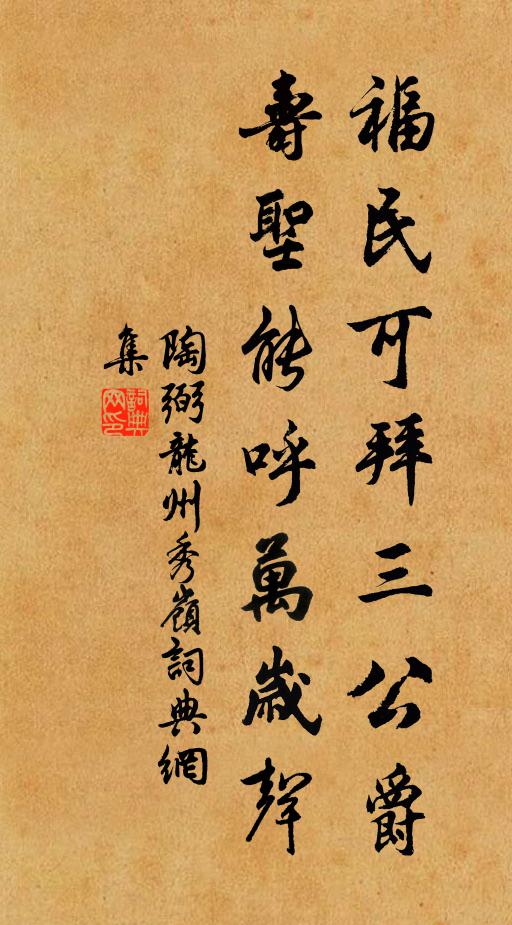 福民可拜三公爵
壽聖能呼萬歲聲
陶弼龍州秀嶺詞典網
集
詞典網印